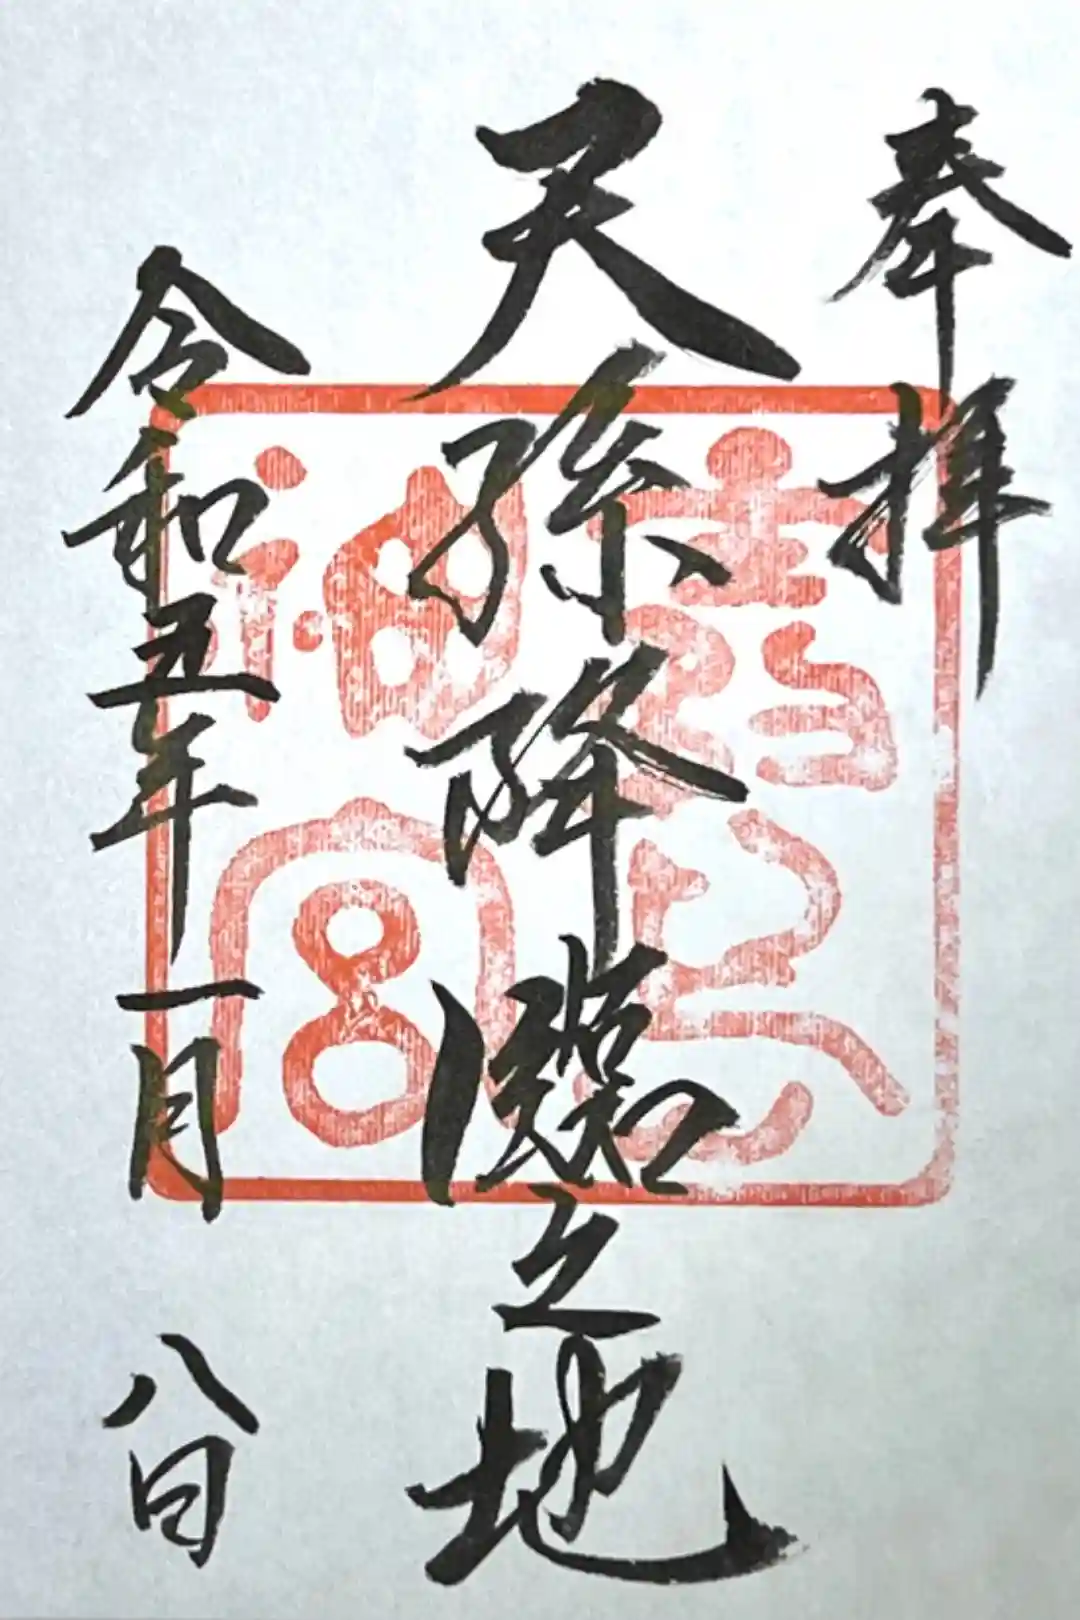 奉拝
天孫降臨之地
令和五年一月八日